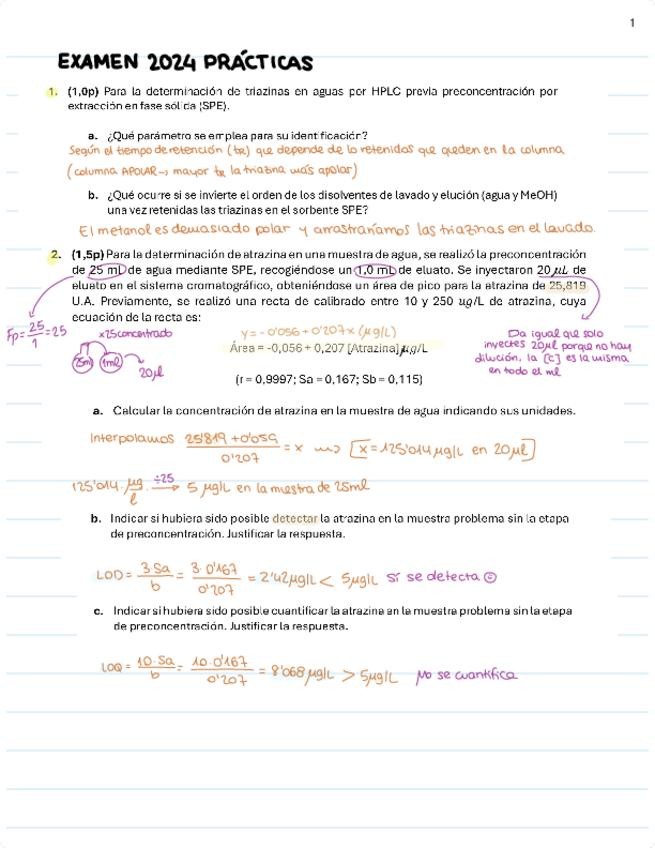 1
EXAMEN 2024 PRÁCTICAS
1. (1,0p) Para la determinación de triazinas en aguas por HPLC previa preconcentración por
extracción en fase sólida (SPE).
a. ¿Qué parámetro se emplea para su identificación?
Según el tiempo de retención (tR) que depende de lo retenidos que queden en la columna
(columna APOLAR → mayor tR la triazina más apolar)
b. ¿Qué ocurre si se invierte el orden de los disolventes de lavado y elución (agua y MeOH)
una vez retenidas las triazinas en el sorbente SPE?
El metanol es demasiado polar y arrastraríamos las triazinas en el lavado.
2. (1,5p) Para la determinación de atrazina en una muestra de agua, se realizó la preconcentración
de 25 mL de agua mediante SPE, recogiéndose un 1,0 mL de eluato. Se inyectaron 20 µL de
eluato en el sistema cromatográfico, obteniéndose un área de pico para la atrazina de 25,819
U.A. Previamente, se realizó una recta de calibrado entre 10 y 250 ug/L de atrazina, cuya
ecuación de la recta es:
Fp = 25/1 = 25
x25 concentrado
25ml 1ml
20µl
y = -0'056 + 0'207x (µg/L)
Área = -0,056 + 0,207 [Atrazina] µg/L
(r = 0,9997; Sa = 0,167; Sb = 0,115)
Da igual que solo
inyectes 20µl porque no hay
dilución, la [c] es la misma
en todo el ml
a. Calcular la concentración de atrazina en la muestra de agua indicando sus unidades.
Interpolamos 25'819 + 0'059 / 0'207 = x ⟿ [x = 125'014 µg/L en 20µl]
125'014 · µg/l ÷25 → 5 µg/L en la muestra de 25ml
b. Indicar si hubiera sido posible detectar la atrazina en la muestra problema sin la etapa
de preconcentración. Justificar la respuesta.
LOD = 3·Sa/b = 3·0'167/0'207 = 2'42µg/L < 5µg/L Sí se detecta ☺
c. Indicar si hubiera sido posible cuantificar la atrazina en la muestra problema sin la etapa
de preconcentración. Justificar la respuesta.
LOQ = 10·Sa/b = 10·0'167/0'207 = 8'068 µg/L > 5µg/L No se cuantifica